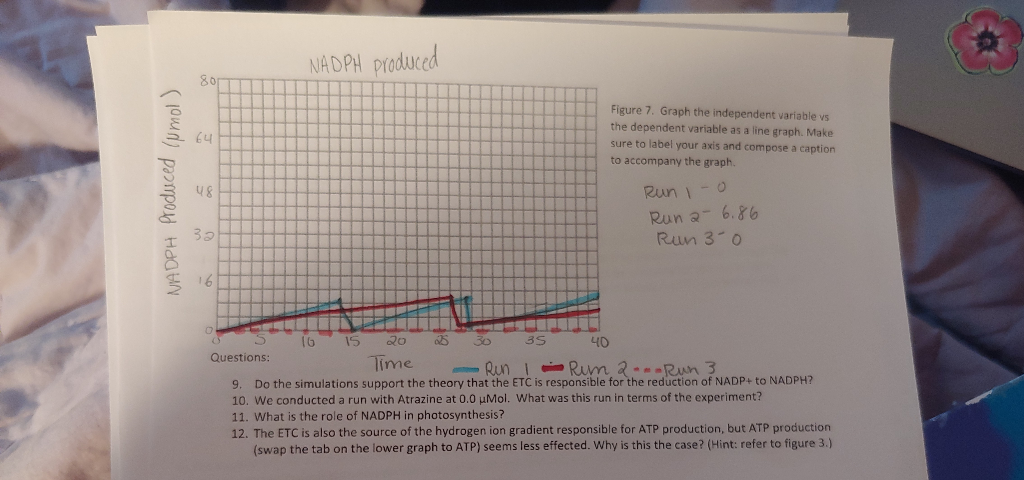 NADPH produced
NADPH Produced (µmol)
80
64
48
32
16
0
0 5 10 15 20 25 30 35 40
Time
Run 1 Run 2 Run 3
Figure 7. Graph the independent variable vs
the dependent variable as a line graph. Make
sure to label your axis and compose a caption
to accompany the graph.
Run 1 - 0
Run 2- 6.86
Run 3- 0
Questions:
9. Do the simulations support the theory that the ETC is responsible for the reduction of NADP+ to NADPH?
10. We conducted a run with Atrazine at 0.0 µMol. What was this run in terms of the experiment?
11. What is the role of NADPH in photosynthesis?
12. The ETC is also the source of the hydrogen ion gradient responsible for ATP production, but ATP production
(swap the tab on the lower graph to ATP) seems less effected. Why is this the case? (Hint: refer to figure 3.)